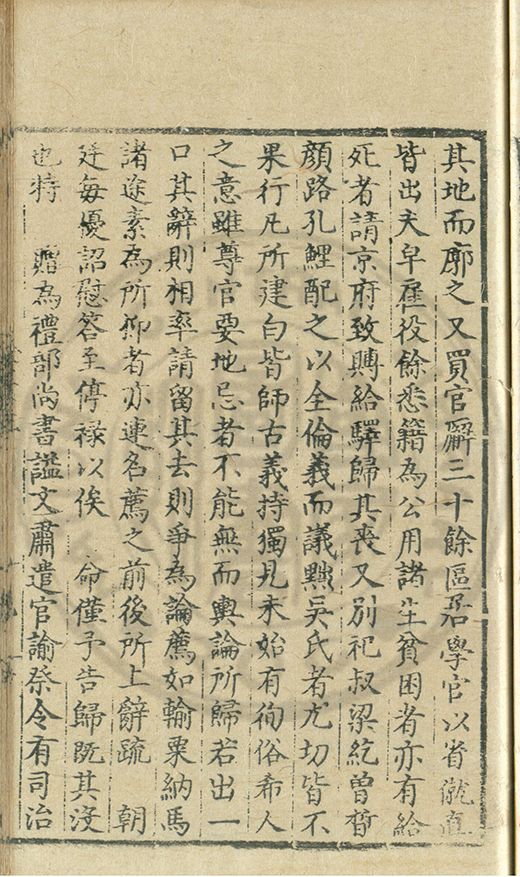 其地而廓之又買官廨三十餘區居學官以省僦直
皆出夫皁雇役餘悉籍為公用諸生貧困者亦有給
死者請京府致賻給驛歸其喪又別祀叔梁紇曾晳
顔路孔鯉配之以全倫義而議黜吳氏者尤切皆不
果行凡所建白皆師古義持獨見未始有徇俗希人
之意雖尊官要地忌者不能無而輿論所歸若出一
口其辭則相率請留其去則爭為論薦如輸粟納馬
諸途素為所抑者亦連名薦之前後所上辭疏 朝
廷每優詔慰答至停祿以俟 命僅予告歸既其沒
也特 贈為禮部尚書謚文肅遣官諭祭令有司治